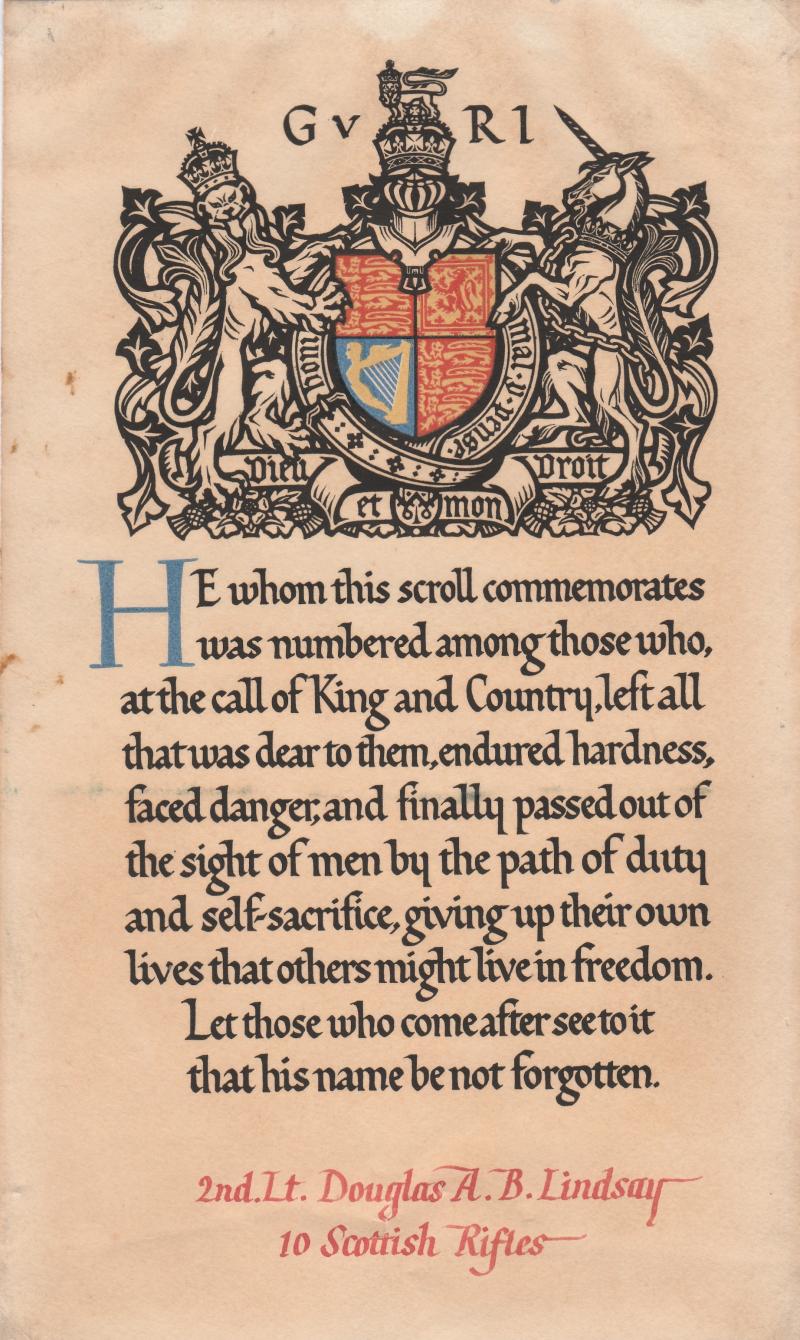 G V R I
Dom mal·y·pense·
Dieu et mon Droit
HE whom this scroll commemorates
was numbered among those who,
at the call of King and Country, left all
that was dear to them, endured hardness,
faced danger, and finally passed out of
the sight of men by the path of duty
and self-sacrifice, giving up their own
lives that others might live in freedom.
Let those who come after see to it
that his name be not forgotten.
2nd. Lt. Douglas A. B. Lindsay
10 Scottish Rifles